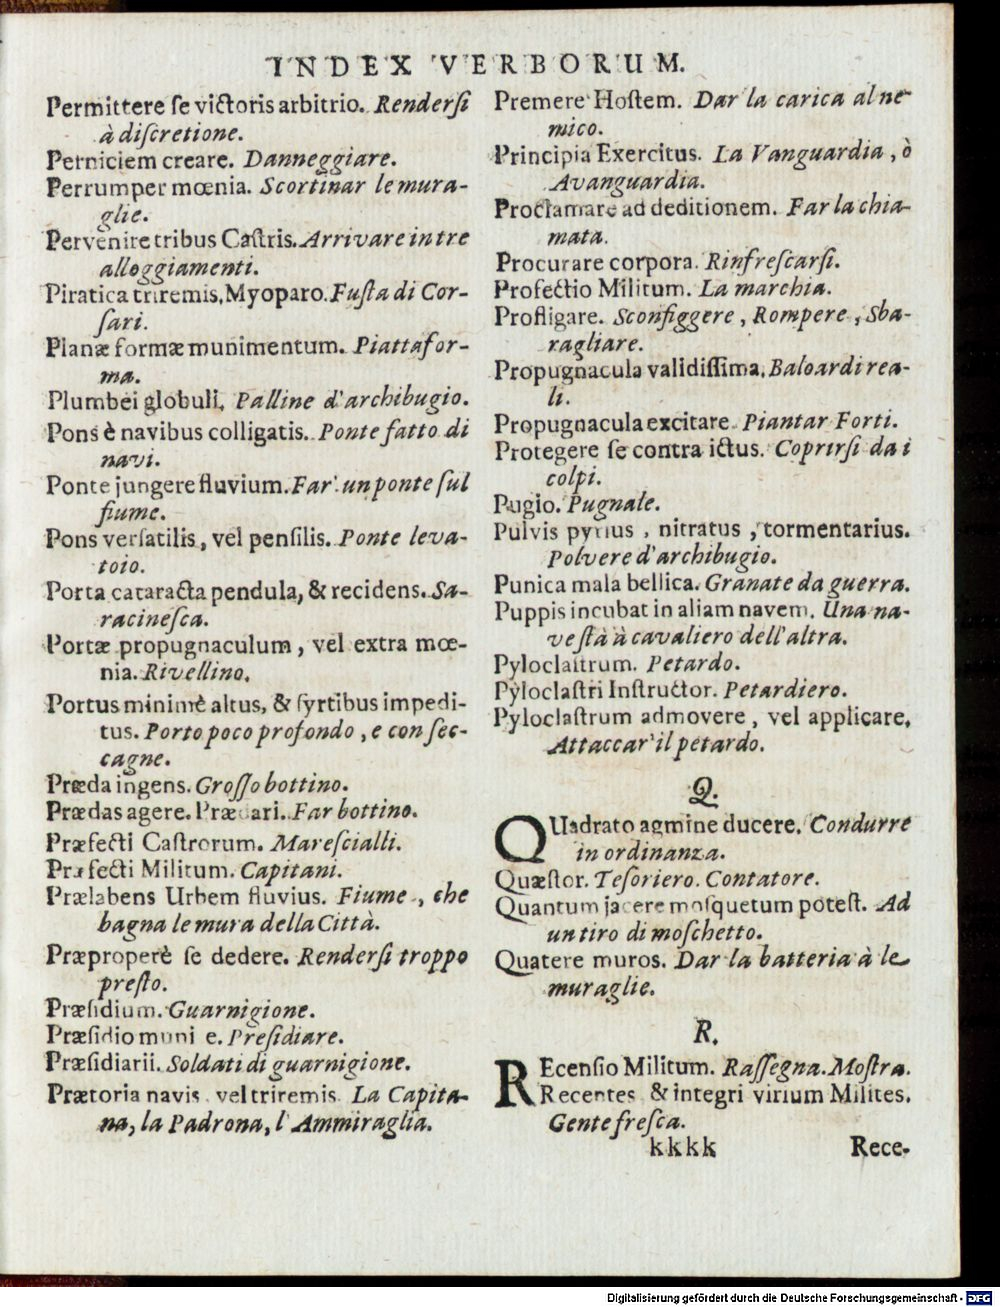 INDEX VERBORUM.
Permittere ſe victoris arbitrio. Renderſi
à diſcretione.
Perniciem creare. Danneggiare.
Perrumper mœnia. Scortinar le mura-
glie.
Pervenire tribus Caſtris. Arrivare in tre
alloggiamenti.
Piratica triremis, Myoparo. Fuſta di Cor-
ſari.
Planæ formæ munimentum. Piattafor-
ma.
Plumbei globuli, Palline d'archibugio.
Pons è navibus colligatis. Ponte fatto di
navi.
Ponte jungere fluvium. Far un ponte ſul
fiume.
Pons verſatilis, vel penſilis. Ponte leva-
toio.
Porta cataracta pendula, & recidens. Sa-
racineſca.
Portæ propugnaculum, vel extra mœ-
nia. Rivellino.
Portus minimè altus, & ſyrtibus impedi-
tus. Porto poco profondo, e con ſec-
cagne.
Præda ingens. Groſſo bottino.
Prædas agere. Prædari. Far bottino.
Præfecti Caſtrorum. Mareſcialli.
Præfecti Militum. Capitani.
Prælabens Urbem fluvius. Fiume, che
bagna le mura della Città.
Præproperè ſe dedere. Renderſi troppo
preſto.
Præſidium. Guarnigione.
Præſidio muni e. Preſidiare.
Præſidiarii. Soldati di guarnigione.
Prætoria navis vel triremis La Capita-
na, la Padrona, l'Ammiraglia.
Premere Hoſtem. Dar la carica al ne-
mico.
Principia Exercitus. La Vanguardia, ò
Avanguardia.
Proclamare ad deditionem. Far la chia-
mata.
Procurare corpora. Rinfreſcarſi.
Profectio Militum. La marchia.
Profligare. Sconfiggere, Rompere, Sba-
ragliare.
Propugnacula validiſſima. Baloardi rea-
li.
Propugnacula excitare. Piantar Forti.
Protegere ſe contra ictus. Coprirſi da i
colpi.
Pugio. Pugnale.
Pulvis pyrius, nitratus, tormentarius.
Polvere d'archibugio.
Punica mala bellica. Granate da guerra.
Puppis incubat in aliam navem. Una na-
ve ſtà à cavaliero dell'altra.
Pyloclaſtrum. Petardo.
Pyloclaſtri Inſtructor. Petardiero.
Pyloclaſtrum admovere, vel applicare.
Attaccar'il petardo.
Q.
QUadrato agmine ducere. Condurre
in ordinanza.
Quæſtor. Teſoriero. Contatore.
Quantum jacere moſquetum poteſt. Ad
un tiro di moſchetto.
Quatere muros. Dar la batteria à le
muraglie.
R.
REcenſio Militum. Raſſegna. Moſtra.
Recentes & integri virium Milites.
Gente freſca.
kkkk Rece-
Digitalisierung gefördert durch die Deutsche Forschungsgemeinschaft - DFG